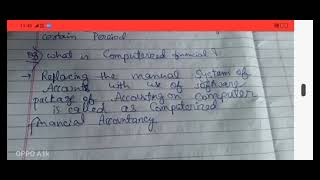 certain Period
Q) what is Computerized financial ?
→ Replacing the manual System of
Accounts with use of software
package of Accounting on Computer
is called as Computerized
financial Accountancy
OPPO A1k